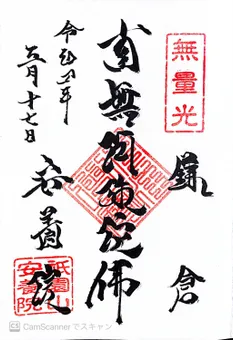 無量光
鎌倉
南無阿弥陀佛
令和 年
五月十七日
安養院
祇園山
安養院
CS CamScannerでスキャン